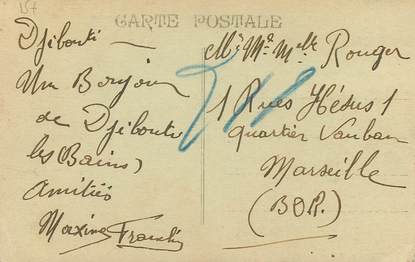 157
CARTE POSTALE
Djibouti —
Un Bonjour
de Djibouti
(les Bains)
Amitiés
Maxime
Mr Me Melle Rouger
1 Rues Hésus 1
quartier Vauban
Marseille
(BDR.)